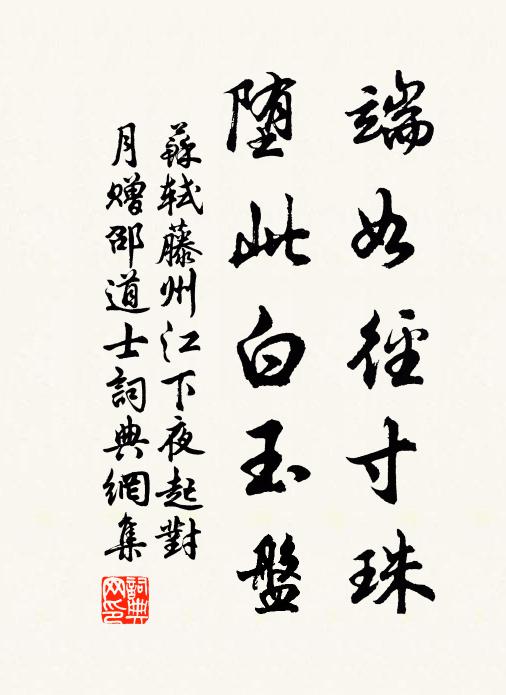 端如徑寸珠
堕此白玉盤
蘇軾藤州江下夜起對
月赠邵道士詞典網集
詞典
网印